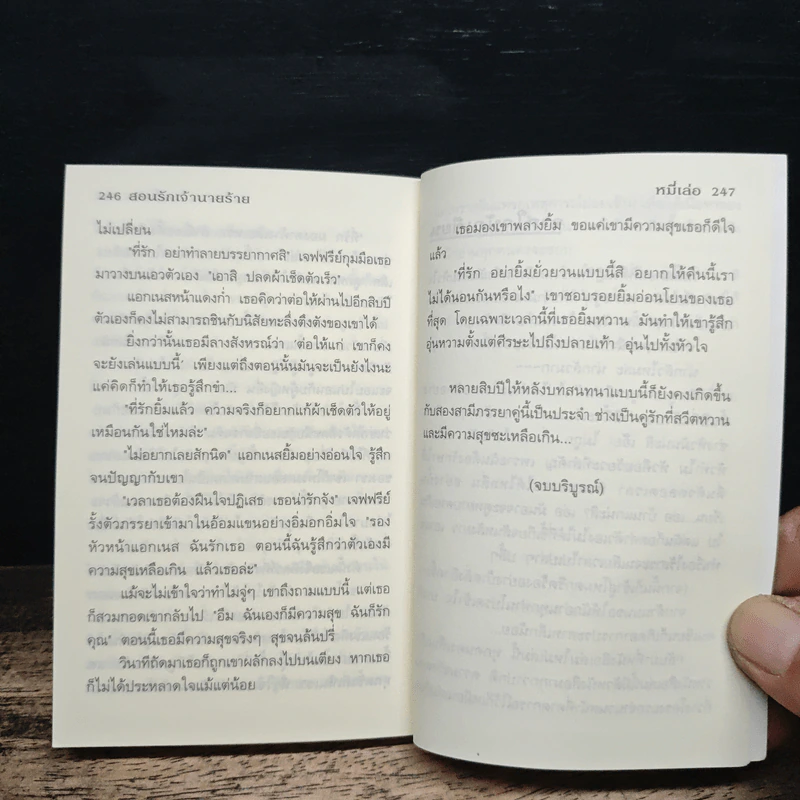 246 สอนรักเจ้านายร้าย
ไม่เปลี่ยน
"ที่รัก อย่าทำลายบรรยากาศสิ" เจฟฟรีย์กุมมือเธอ
มาวางบนเอวตัวเอง "เอาสิ ปลดผ้าเช็ดตัวเร็ว"
แอกเนสหน้าแดงก่ำ เธอคิดว่าต่อให้ผ่านไปอีกสิบปี
ตัวเองก็คงไม่สามารถชินกับนิสัยทะลึ่งตึงตังของเขาได้
ยิ่งกว่านั้นเธอมีลางสังหรณ์ว่า 'ต่อให้แก่ เขาก็คง
จะยังเล่นแบบนี้' เพียงแต่ถึงตอนนั้นมันจะเป็นยังไงนะ
แค่คิดก็ทำให้เธอรู้สึกขำ...
"ที่รักยิ้มแล้ว ความจริงก็อยากแก้ผ้าเช็ดตัวให้อยู่
เหมือนกันใช่ไหมล่ะ"
"ไม่อยากเลยสักนิด" แอกเนสยิ้มอย่างอ่อนใจ รู้สึก
จนปัญญากับเขา
"เวลาเธอต้องฝืนใจปฏิเสธ เธอน่ารักจัง" เจฟฟรีย์
รั้งตัวภรรยาเข้ามาในอ้อมแขนอย่างอิ่มอกอิ่มใจ "รอง
หัวหน้าแอกเนส ฉันรักเธอ ตอนนี้ฉันรู้สึกว่าตัวเองมี
ความสุขเหลือเกิน แล้วเธอล่ะ"
แม้จะไม่เข้าใจว่าทำไมจู่ๆ เขาถึงถามแบบนี้ แต่เธอ
ก็สวมกอดเขากลับไป "อืม ฉันเองก็มีความสุข ฉันก็รัก
คุณ" ตอนนี้เธอมีความสุขจริงๆ สุขจนล้นปรี่
วินาทีถัดมาเธอก็ถูกเขาผลักลงไปบนเตียง หากเธอ
ก็ไม่ได้ประหลาดใจแม้แต่น้อย
หมี่เล่อ 247
เธอมองเขาพลางยิ้ม ขอแค่เขามีความสุขเธอก็ดีใจ
แล้ว
"ที่รัก อย่ายิ้มยั่วยวนแบบนี้สิ อยากให้คืนนี้เรา
ไม่ได้นอนกันหรือไง" เขาชอบรอยยิ้มอ่อนโยนของเธอ
ที่สุด โดยเฉพาะเวลานี้ที่เธอยิ้มหวาน มันทำให้เขารู้สึก
อุ่นหวามตั้งแต่ศีรษะไปถึงปลายเท้า อุ่นไปทั้งหัวใจ
หลายสิบปีให้หลังบทสนทนาแบบนี้ก็ยังคงเกิดขึ้น
กับสองสามีภรรยาคู่นี้เป็นประจำ ช่างเป็นคู่รักที่สวีตหวาน
และมีความสุขซะเหลือเกิน...
(จบบริบูรณ์)